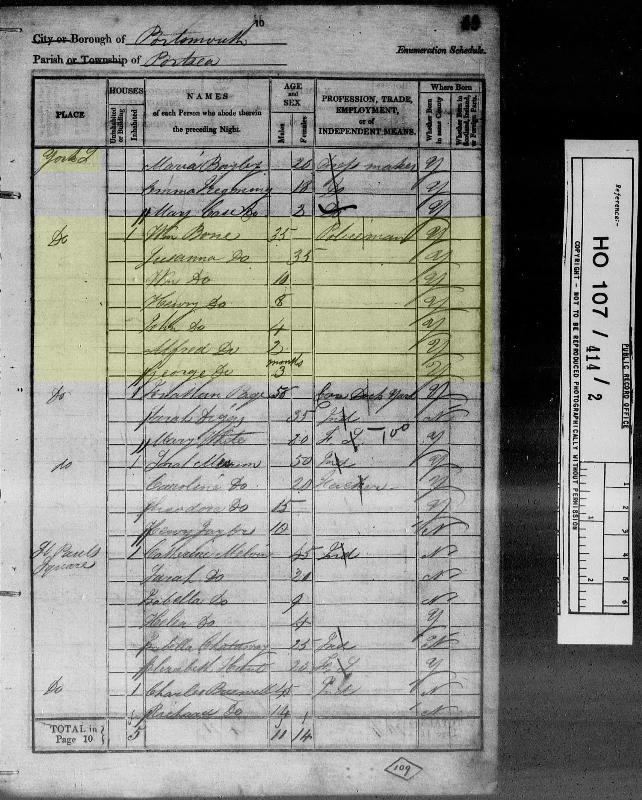 10
City or Borough of Portsmouth
Parish or Township of Portsea
Enumeration Schedule.
PLACE
HOUSES
Uninhabited or Building
Inhabited
NAMES of each Person who abode therein the preceding Night.
AGE and SEX
Males
Females
PROFESSION, TRADE, EMPLOYMENT, or of INDEPENDENT MEANS.
Where Born
Whether Born in same County
Whether Born in Scotland, Ireland, or Foreign Parts.
Maria 20 Dress maker Y
Emma 18 Do Y
Mary Case Do 2 Y
Do 1 Wm Bone 35 Policeman Y
Susanna Do 35 Y
Wm Do 10 Y
Henry Do 8 Y
John Do 4 Y
Alfred Do 2 Y
months
George Do 3 Y
Do 1 Jonathan Page 50 Dock Yard Y
Sarah 35 Ind N
Mary White 20 F S Y
Do 1 50 Ind Y
Caroline Do 20 Y
Theodore Do 15 Y
Henry Taylor 10 N
St Pauls Square 1 Catherine 45 Ind N
Sarah Do 20 N
Isabella Do 9 N
Helen Do 4 Y
Isabella 25 Ind N
Elizabeth 20 F S Y
Do 1 Charles 45 Ind N
Richard Do 14 N
TOTAL in Page 10 } 5 11 14
109
Reference:-
HO 107 / 414 / 2
PUBLIC RECORD OFFICE
COPYRIGHT - NOT TO BE REPRODUCED PHOTOGRAPHICALLY WITHOUT PERMISSION